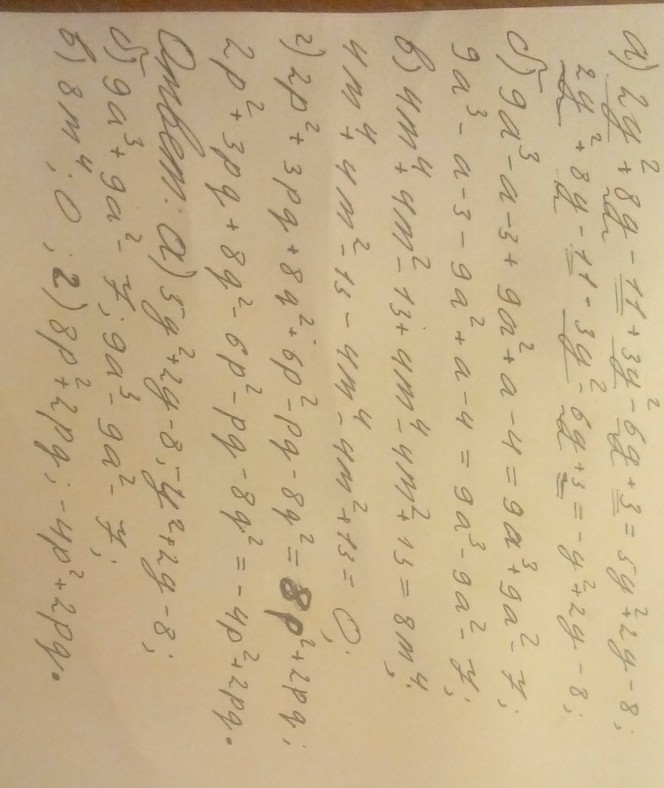 а) 2y² + 8y - 11 + 3y² - 6y + 3 = 5y² + 2y - 8;
2y² + 8y - 11 - 3y² - 6y + 3 = -y² + 2y - 8;
б) 9a³ - a - 3 + 9a² + a - 4 = 9a³ + 9a² - 7;
9a³ - a - 3 - 9a² + a - 4 = 9a³ - 9a² - 7;
в) 4m⁴ + 4m² - 13 + 4m⁴ - 4m² + 13 = 8m⁴;
4m⁴ + 4m² - 13 - 4m⁴ - 4m² + 13 = 0;
г) 2p² + 3pq + 8q² + 6p² - pq - 8q² = 8p² + 2pq;
2p² + 3pq + 8q² - 6p² - pq - 8q² = -4p² + 2pq.
Ответ: а) 5y² + 2y - 8; -y² + 2y - 8;
б) 9a³ + 9a² - 7; 9a³ - 9a² - 7;
в) 8m⁴; 0; 2) 8p² + 2pq; -4p² + 2pq.